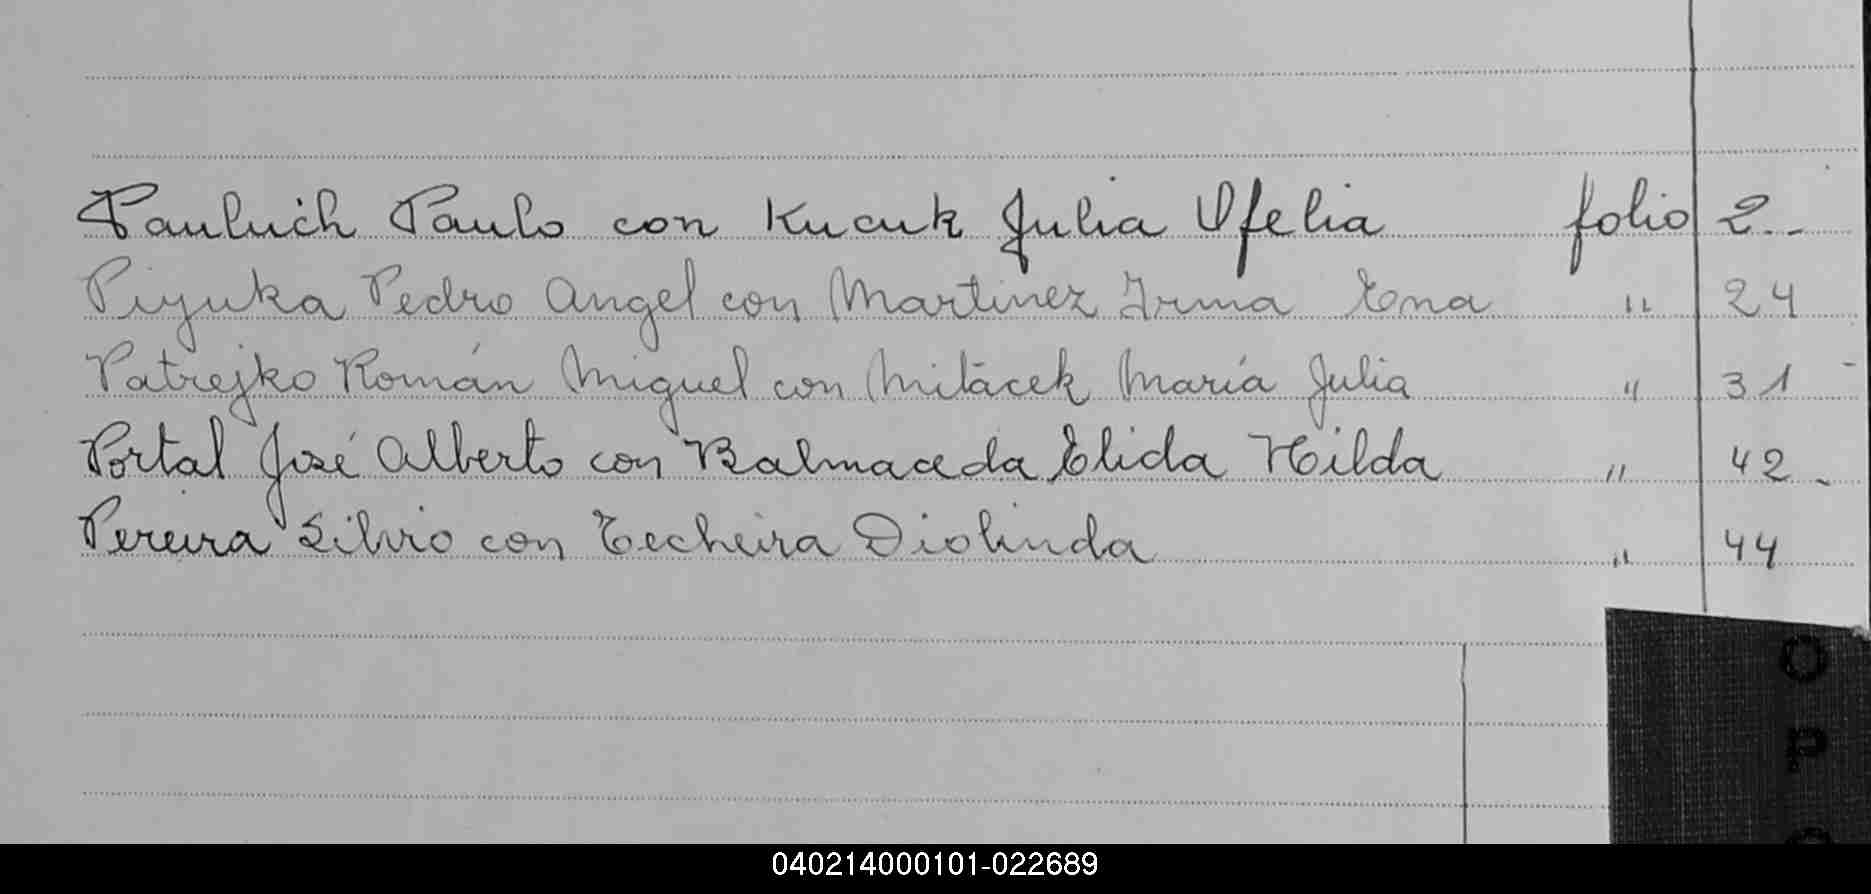 Pauluch Paulo con Kucuk Julia Ofelia folio 2--
Piyuka Pedro Angel con Martinez Irma Ema " 24
Patrejko Román Miguel con Mitácek María Julia " 31
Portal José Alberto con Balmaceda Elida Hilda " 42-
Pereira Silvio con Techeira Diolinda " 44
O
P
040214000101-022689